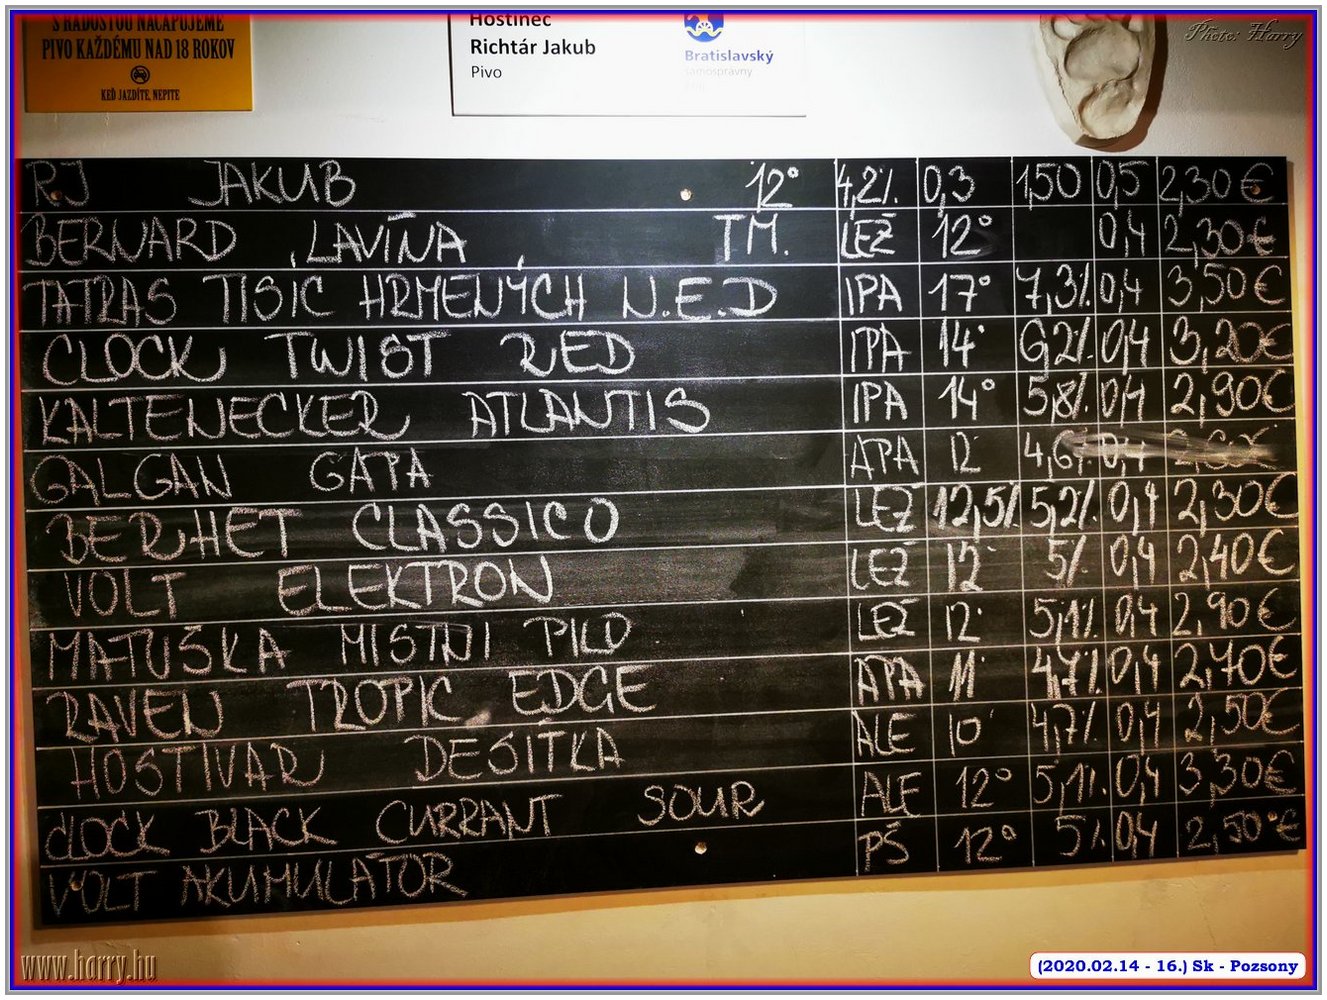 S RADOSŤOU NAČAPUJEME
PIVO KAŽDÉMU NAD 18 ROKOV
KEĎ JAZDÍTE, NEPITE
Hostinec
Richtár Jakub
Pivo
Bratislavský
samosprávny
Photo: Harry
RJ JAKUB 12° 4,2% 0,3 1,50 0,5 2,30€
BERNARD ,LAVÍNA, TM. LEŽ 12° 0,4 2,30€
TATRAS TISÍC HRMENÝCH N.E.D IPA 17° 7,3% 0,4 3,50€
CLOCK TWIST RED IPA 14° 6,2% 0,4 3,20€
KALTENECKER ATLANTIS IPA 14° 5,8% 0,4 2,90€
GALGAN GAPA APA 12 4,6% 0,4
BERHET CLASSICO LEŽ 12,5% 5,2% 0,4 2,30€
VOLT ELEKTRON LEŽ 12° 5% 0,4 2,40€
MATUŠKA MISTNI PILD LEŽ 12° 5,1% 0,4 2,90€
RAVEN TROPIC EDGE APA 11° 4,7% 0,4 2,70€
HOSTIVAR DESÍTKA ALE 10° 4,7% 0,4 2,50€
CLOCK BLACK CURRANT SOUR ALE 12° 5,1% 0,4 3,30€
VOLT AKUMULÁTOR PŠ 12° 5% 0,4 2,50€
www.harry.hu
(2020.02.14 - 16.) Sk - Pozsony